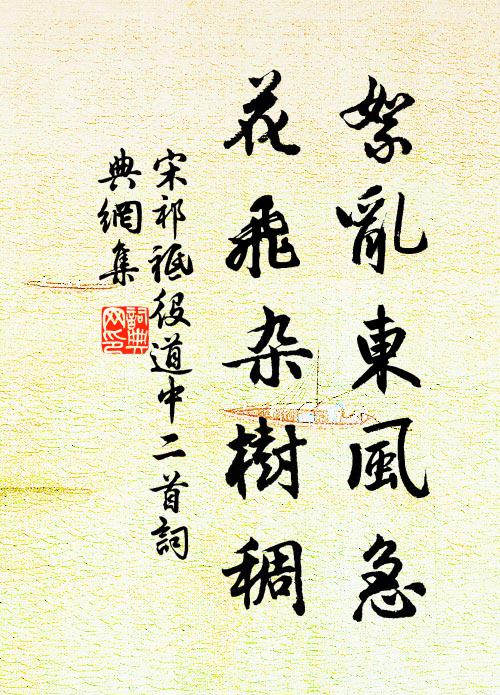 絮亂東風急
花飛杂樹稠
宋祁祗役道中二首詞
典網集
詞典网印